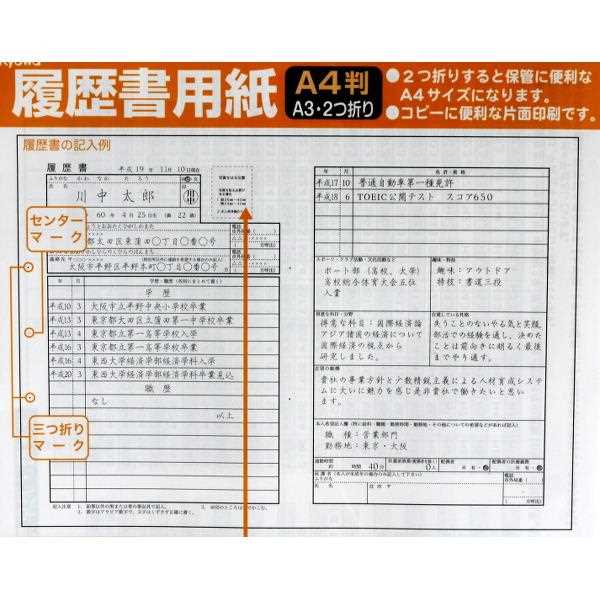 Kyowa
履歴書用紙
A4判
A3・2つ折り
●2つ折りすると保管に便利な
A4サイズになります。
●コピーに便利な片面印刷です。
履歴書の記入例
履歴書
平成19年11月10日現在
ふりがな かわ なか た ろう
氏名
川中太郎
60年4月25日生(満22歳)
センター
マーク
都大田区東蒲田〇丁目〇番〇号
連絡先
大阪市平野区平野本町〇丁目〇番〇号
年 月 学歴・職歴
学歴
平成10 3 大阪市立平野中央小学校卒業
平成13 3 東京都大田区立蒲田第一中学校卒業
平成13 4 東京都立第一高等学校入学
平成16 3 東京都立第一高等学校卒業
平成16 4 東西大学経済学部経済学科入学
平成20 3 東西大学経済学部経済学科卒業見込
職歴
なし
以上
三つ折り
マーク
年 月 免許・資格
平成17 10 普通自動車第一種免許
平成18 6 TOEIC公開テスト スコア650
スポーツ・クラブ活動・文化活動など
ボート部(高校、大学)
高校総合体育大会五位
入賞
趣味・特技
趣味:アウトドア
特技:書道三段
得意な科目・分野
得意な科目:国際経済論
アジア諸国の経済について
国際経済の視点から
研究しました。
自覚している性格
失うことのないやる気と笑顔。
部活での経験を通し、決めた
ことは前向きに明るく最後
までやり通す。
志望の動機
貴社の事業方針と少数精鋭主義による人材育成システ
ムに大いに魅力を感じ是非貴社で働きたいと思い
ます。
職種:営業部門
勤務地:東京・大阪
通勤時間
約 時間 40分
0人
配偶者
有・無